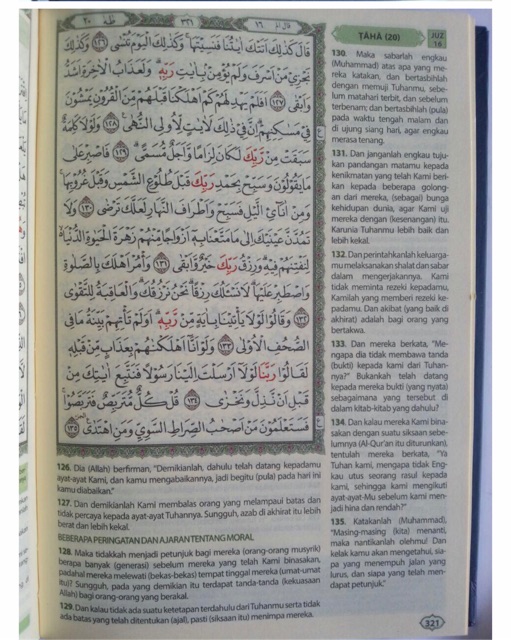 طٰهٰ ٢٠ ٣٢١ قال الم ١٦
قَالَ كَذٰلِكَ اَتَتْكَ اٰيٰتُنَا فَنَسِيْتَهَاۚ وَكَذٰلِكَ الْيَوْمَ تُنْسٰى ﴿١٢٦﴾ وَكَذٰلِكَ
نَجْزِيْ مَنْ اَسْرَفَ وَلَمْ يُؤْمِنْۢ بِاٰيٰتِ رَبِّهٖۗ وَلَعَذَابُ الْاٰخِرَةِ اَشَدُّ
وَاَبْقٰى ﴿١٢٧﴾ اَفَلَمْ يَهْدِ لَهُمْ كَمْ اَهْلَكْنَا قَبْلَهُمْ مِّنَ الْقُرُوْنِ يَمْشُوْنَ
فِيْ مَسٰكِنِهِمْۗ اِنَّ فِيْ ذٰلِكَ لَاٰيٰتٍ لِّاُولِى النُّهٰى ﴿١٢٨﴾ وَلَوْلَا كَلِمَةٌ
سَبَقَتْ مِنْ رَّبِّكَ لَكَانَ لِزَامًا وَّاَجَلٌ مُّسَمًّى ﴿١٢٩﴾ فَاصْبِرْ عَلٰى
مَا يَقُوْلُوْنَ وَسَبِّحْ بِحَمْدِ رَبِّكَ قَبْلَ طُلُوْعِ الشَّمْسِ وَقَبْلَ غُرُوْبِهَاۚ
وَمِنْ اٰنَاۤئِ الَّيْلِ فَسَبِّحْ وَاَطْرَافَ النَّهَارِ لَعَلَّكَ تَرْضٰى ﴿١٣٠﴾ وَلَا
تَمُدَّنَّ عَيْنَيْكَ اِلٰى مَا مَتَّعْنَا بِهٖٓ اَزْوَاجًا مِّنْهُمْ زَهْرَةَ الْحَيٰوةِ الدُّنْيَا
لِنَفْتِنَهُمْ فِيْهِۗ وَرِزْقُ رَبِّكَ خَيْرٌ وَّاَبْقٰى ﴿١٣١﴾ وَأْمُرْ اَهْلَكَ بِالصَّلٰوةِ
وَاصْطَبِرْ عَلَيْهَاۗ لَا نَسْـَٔلُكَ رِزْقًاۗ نَحْنُ نَرْزُقُكَۗ وَالْعَاقِبَةُ لِلتَّقْوٰى
﴿١٣٢﴾ وَقَالُوْا لَوْلَا يَأْتِيْنَا بِاٰيَةٍ مِّنْ رَّبِّهٖۗ اَوَلَمْ تَأْتِهِمْ بَيِّنَةُ مَا فِى
الصُّحُفِ الْاُوْلٰى ﴿١٣٣﴾ وَلَوْ اَنَّآ اَهْلَكْنٰهُمْ بِعَذَابٍ مِّنْ قَبْلِهٖ
لَقَالُوْا رَبَّنَا لَوْلَآ اَرْسَلْتَ اِلَيْنَا رَسُوْلًا فَنَتَّبِعَ اٰيٰتِكَ مِنْ
قَبْلِ اَنْ نَّذِلَّ وَنَخْزٰى ﴿١٣٤﴾ قُلْ كُلٌّ مُّتَرَبِّصٌ فَتَرَبَّصُوْاۚ
فَسَتَعْلَمُوْنَ مَنْ اَصْحٰبُ الصِّرَاطِ السَّوِيِّ وَمَنِ اهْتَدٰى ﴿١٣٥﴾
126. Dia (Allah) berfirman, "Demikianlah, dahulu telah datang kepadamu
ayat-ayat Kami, dan kamu mengabaikannya, jadi begitu (pula) pada hari ini
kamu diabaikan."
127. Dan demikianlah Kami membalas orang yang melampaui batas dan
tidak percaya kepada ayat-ayat Tuhannya. Sungguh, azab di akhirat itu lebih
berat dan lebih kekal.
BEBERAPA PERINGATAN DAN AJARAN TENTANG MORAL
128. Maka tidakkah menjadi petunjuk bagi mereka (orang-orang musyrik)
berapa banyak (generasi) sebelum mereka yang telah Kami binasakan,
padahal mereka melewati (bekas-bekas) tempat tinggal mereka (umat-umat
itu)? Sungguh, pada yang demikian itu terdapat tanda-tanda (kekuasaan
Allah) bagi orang-orang yang berakal.
129. Dan kalau tidak ada suatu ketetapan terdahulu dari Tuhanmu serta tidak
ada batas yang telah ditentukan (ajal), pasti (siksaan itu) menimpa mereka.
ṬĀHĀ (20)
JUZ
16
130. Maka sabarlah engkau
(Muhammad) atas apa yang me-
reka katakan, dan bertasbihlah
dengan memuji Tuhanmu, sebe-
lum matahari terbit, dan sebelum
terbenam; dan bertasbihlah (pula)
pada waktu tengah malam dan
di ujung siang hari, agar engkau
merasa tenang.
131. Dan janganlah engkau tuju-
kan pandangan matamu kepada
kenikmatan yang telah Kami beri-
kan kepada beberapa golong-
an dari mereka, (sebagai) bunga
kehidupan dunia, agar Kami uji
mereka dengan (kesenangan) itu.
Karunia Tuhanmu lebih baik dan
lebih kekal.
132. Dan perintahkanlah keluarga-
mu melaksanakan shalat dan sabar
dalam mengerjakannya. Kami
tidak meminta rezeki kepadamu,
Kamilah yang memberi rezeki ke-
padamu. Dan akibat (yang baik di
akhirat) adalah bagi orang yang
bertakwa.
133. Dan mereka berkata, "Me-
ngapa dia tidak membawa tanda
(bukti) kepada kami dari Tuhan-
nya?" Bukankah telah datang
kepada mereka bukti (yang nyata)
sebagaimana yang tersebut di
dalam kitab-kitab yang dahulu?
134. Dan kalau mereka Kami bina-
sakan dengan suatu siksaan sebe-
lumnya (Al-Qur'an itu diturunkan),
tentulah mereka berkata, "Ya
Tuhan kami, mengapa tidak Eng-
kau utus seorang rasul kepada
kami, sehingga kami mengikuti
ayat-ayat-Mu sebelum kami men-
jadi hina dan rendah?"
135. Katakanlah (Muhammad),
"Masing-masing (kita) menanti,
maka nantikanlah olehmu! Dan
kelak kamu akan mengetahui, sia-
pa yang menempuh jalan yang
lurus, dan siapa yang telah men-
dapat petunjuk."
321